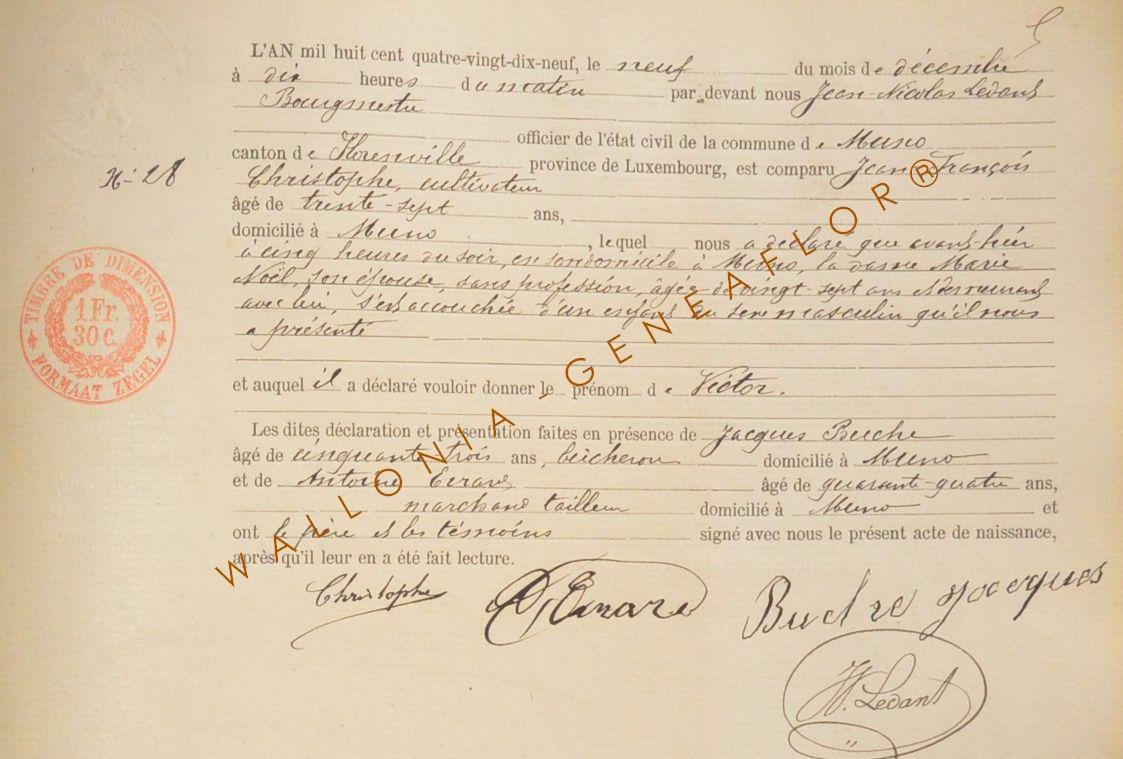 L'AN mil huit cent quatre-vingt-dix-neuf, le neuf du mois de décembre
à dix heures du matin par devant nous Jean-Nicolas Ledant
Bourgmestre
officier de l'état civil de la commune de Muno
canton de Florenville province de Luxembourg, est comparu Jean-François
N° 28
Christophe, cultivateur
âgé de trente-sept ans,
domicilié à Muno, lequel nous a déclaré que avant-hier
à cinq heures du soir, en son domicile à Muno, la dame Marie
Noël, son épouse, sans profession, âgée de vingt-sept ans demeurant
avec lui, s'est accouchée d'un enfant du sexe masculin qu'il nous
a présenté
TIMBRE DE DIMENSION
1 Fr.
30 C.
FORMAAT ZEGEL
et auquel il a déclaré vouloir donner le prénom de Victor.
Les dites déclaration et présentation faites en présence de Jacques Buche
âgé de cinquante trois ans, bûcheron domicilié à Muno
et de Antoine âgé de quarante-quatre ans,
marchand tailleur domicilié à Muno et
ont le père et les témoins signé avec nous le présent acte de naissance,
après qu'il leur en a été fait lecture.
WALLONIA - GENEAFLOR®
Christophe
Jacques
Ledant